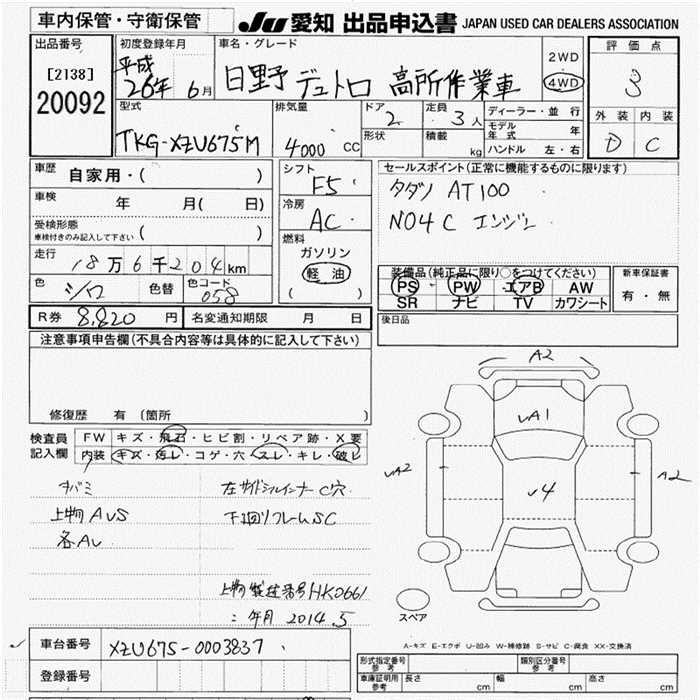 車内保管・守衛保管
JU 愛知 出品申込書 JAPAN USED CAR DEALERS ASSOCIATION
出品番号
[2138]
20092
初度登録年月
平成
26年 6月
車名・グレード
日野 デュトロ 高所作業車
2WD
4WD
評価点
3
外装 内装
D C
型式
TKG-XZU675M
排気量
4000 CC
ドア
2
形状
定員
3人
積載
kg
ディーラー・並行
モデル年式 年
ハンドル 左・右
車歴 自家用・( )
車検 年 月( 日)
受検形態
車検付きのみ記入して下さい ( )
走行 18万6千204km
色 シロ 色替 色コード 058
シフト
F5
冷房
AC
燃料
ガソリン
軽油
( )
セールスポイント(正常に機能するものに限ります)
タダノ AT100
N04C エンジン
装備品(純正品に限り○をつけてください)
PS PW エアB AW
SR ナビ TV カワシート
新車保証書
有・無
R券 8,820 円 名変通知期限 月 日
後日品
注意事項申告欄(不具合内容等は具体的に記入して下さい)
修復歴 有 (箇所 )
検査員記入欄
FW キズ・飛石・ヒビ割・リペア跡・X要
内装 キズ・汚レ・コゲ・穴・スレ・キレ・破レ
上物AUS
各AU
左サイドシルインナーC穴
下回リフレームSC
上物製造番号HK0661
〃 年月 2014.5
A2
UA1
UA2
U4
A2
スペア
A-キズ E-エクボ U-凹み W-補修跡 S-サビ C-腐食 XX-交換済
車台番号 XZU675-0003837
登録番号
形式指定番号 参考
類別区分番号 参考
車庫証明用 参考 長さ cm 幅 cm 高さ cm